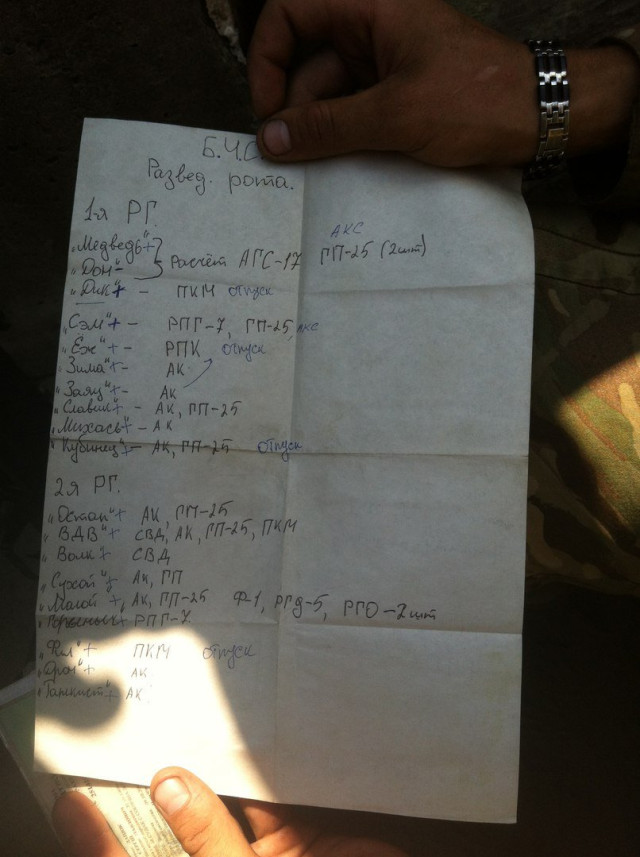 Б.Ч.С.
Развед. рота.
1-я РГ.
АКС
„Медведь"+
„Дон"- Расчёт АГС-17 ГП-25 (2шт)
„Дик"+ - ПКМ отпуск
„Сэм"+ - РПГ-7, ГП-25, АКС
„Ёж"+ - РПК отпуск
„Зима"+ - АК
„Заяц"+ - АК
„Славик"+ - АК, ГП-25
„Михась"+ - АК
„Кубинец"+ - АК, ГП-25 отпуск
2я РГ.
„Остап"+ АК, ГП-25
„ВДВ"+ СВД, АК, ГП-25, ПКМ
„Волк"+ СВД
„Сухой"+ АК, ГП
„Малой"+, АК, ГП-25 Ф-1, РГД-5, РГО-2шт
РПГ-7
ПКМ отпуск
„Дрон"+ АК
„Танкист"+ АК